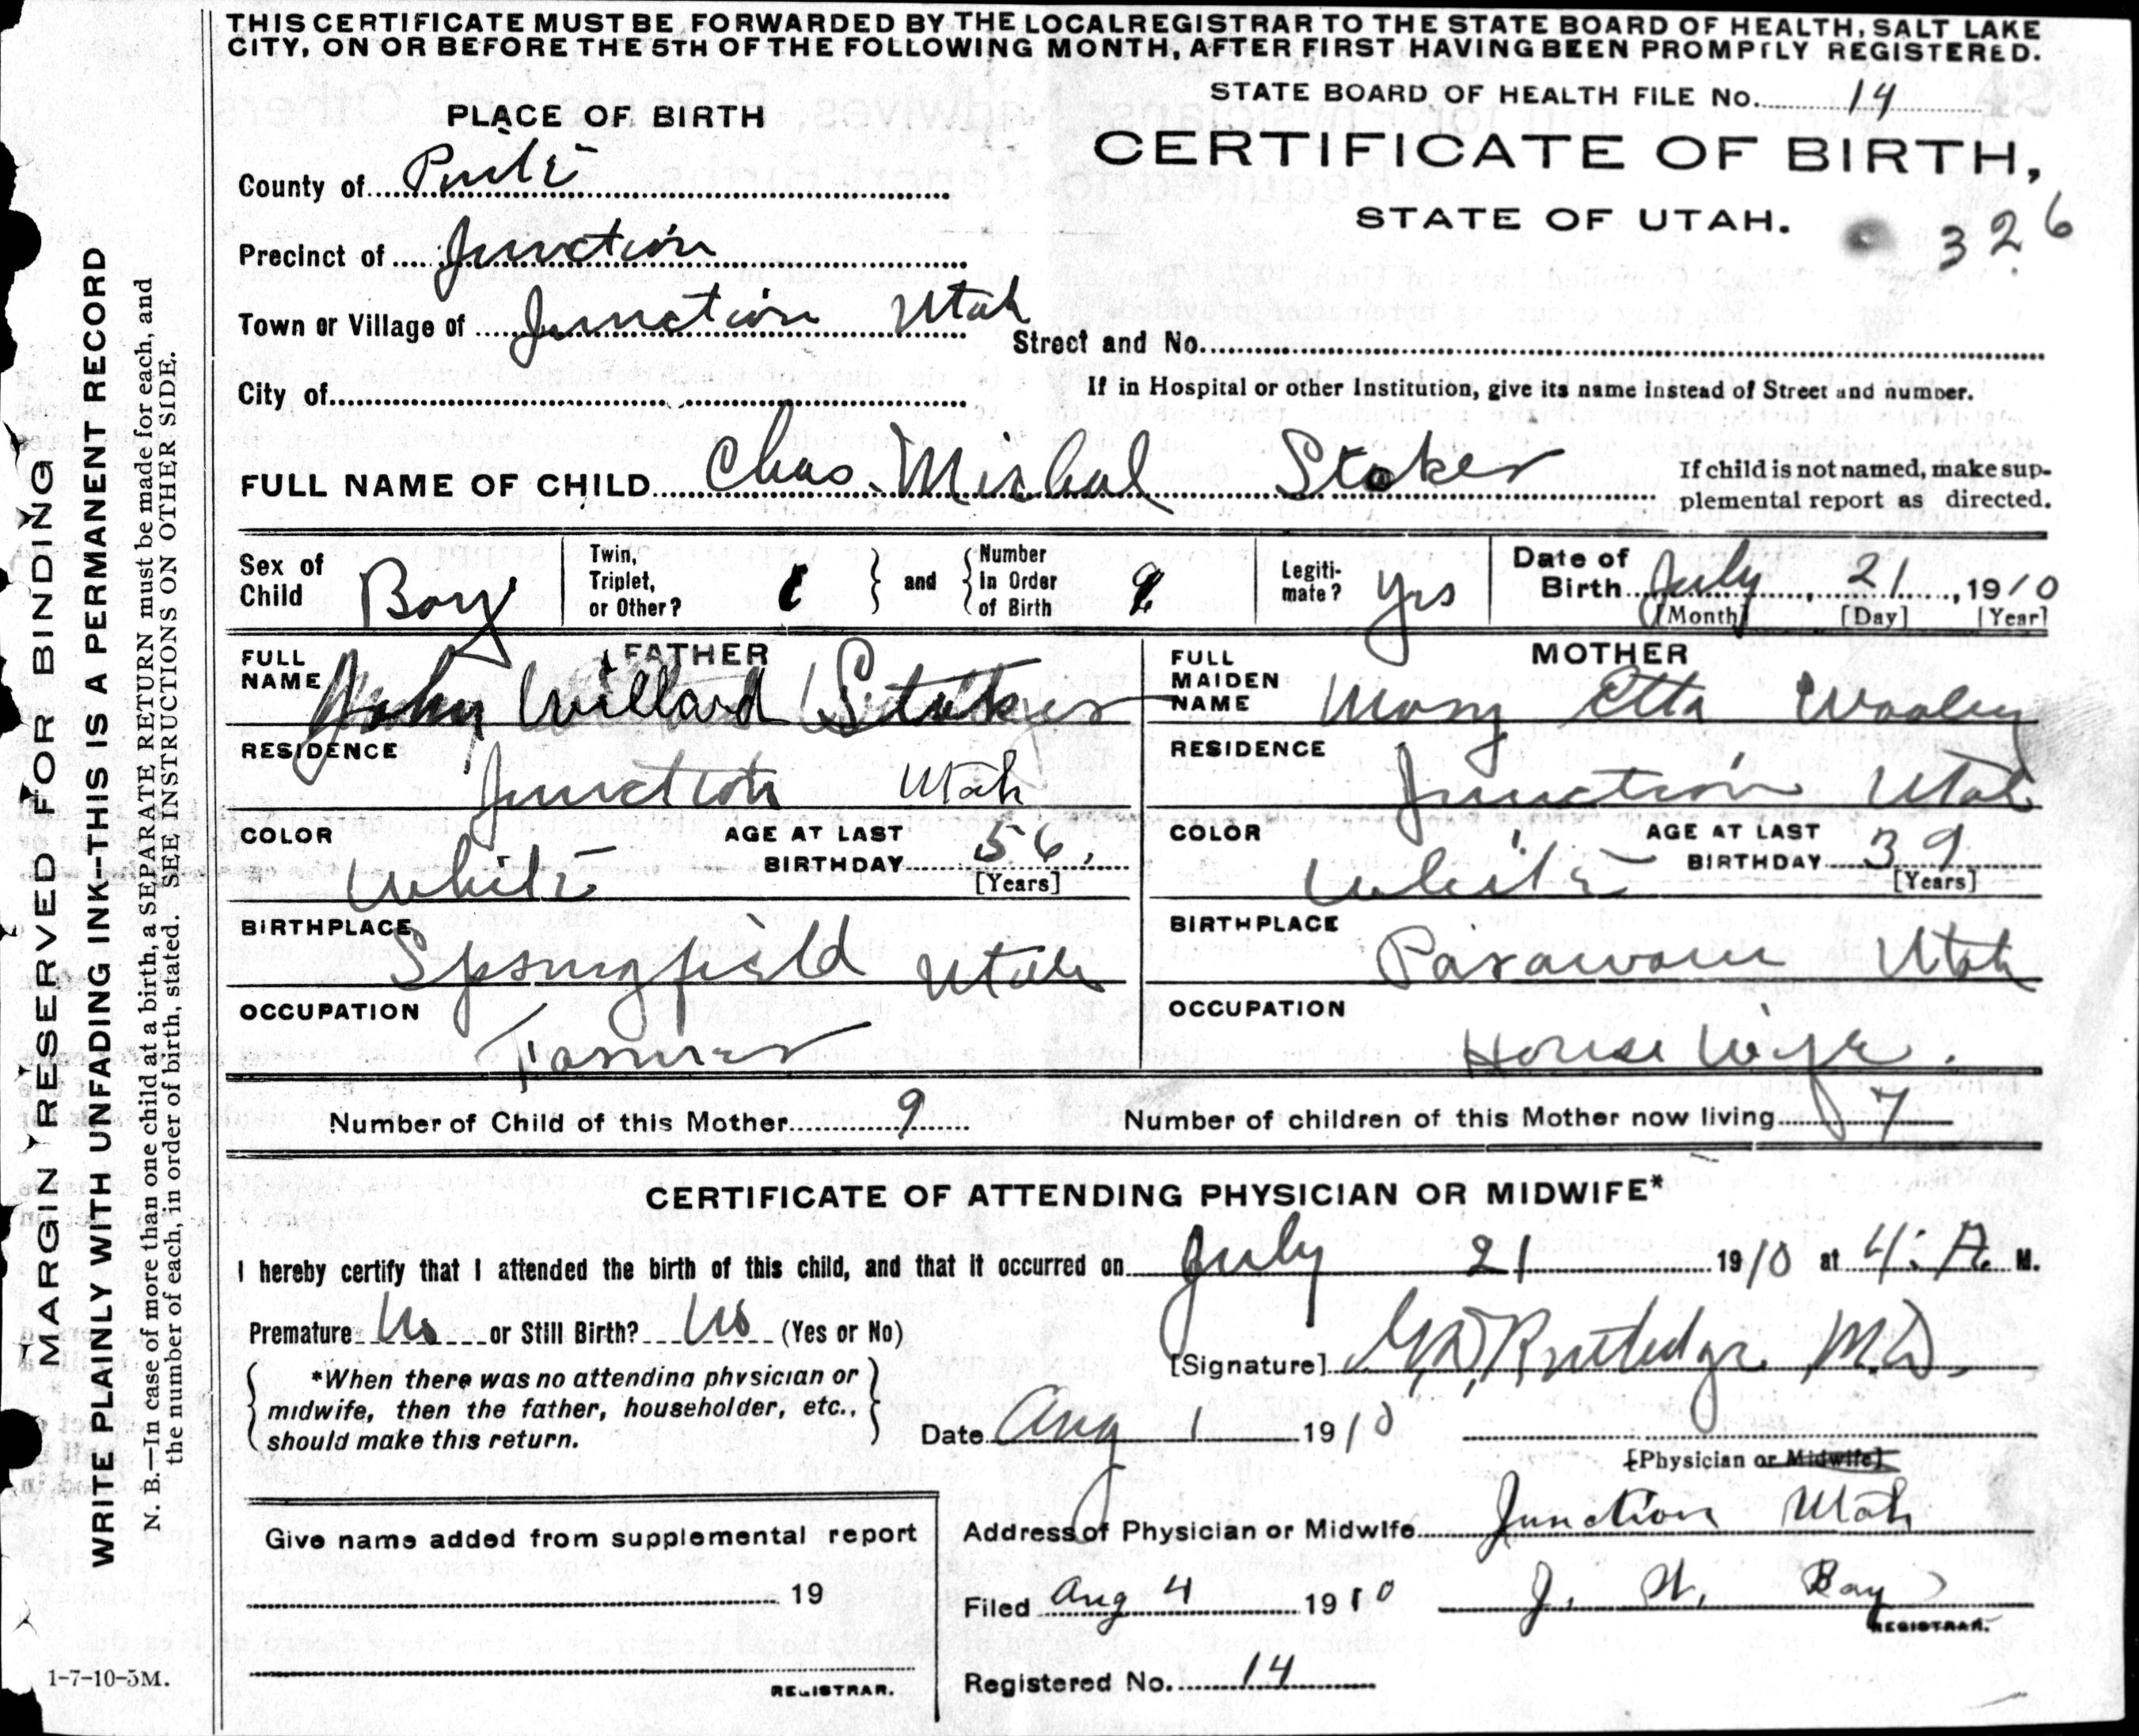 THIS CERTIFICATE MUST BE FORWARDED BY THE LOCAL REGISTRAR TO THE STATE BOARD OF HEALTH, SALT LAKE
CITY, ON OR BEFORE THE 5TH OF THE FOLLOWING MONTH, AFTER FIRST HAVING BEEN PROMPTLY REGISTERED.
STATE BOARD OF HEALTH FILE No. 14
PLACE OF BIRTH
CERTIFICATE OF BIRTH,
STATE OF UTAH.
326
County of Piute
Precinct of Junction
Town or Village of Junction Utah
Street and No.
City of
If in Hospital or other Institution, give its name instead of Street and number.
FULL NAME OF CHILD Chas. Michal Stoker
If child is not named, make sup-
plemental report as directed.
Sex of Child Boy
Twin, Triplet, or Other?
and
Number in Order of Birth
Legiti-mate? Yes
Date of Birth July 21, 1910
[Month] [Day] [Year]
FATHER
FULL NAME John Willard Stoker
RESIDENCE
Junction Utah
COLOR White
AGE AT LAST BIRTHDAY 56
[Years]
BIRTHPLACE
Springfield Utah
OCCUPATION
Farmer
MOTHER
FULL MAIDEN NAME Mary Etta Wooley
RESIDENCE
Junction Utah
COLOR White
AGE AT LAST BIRTHDAY 39
[Years]
BIRTHPLACE
Parawoun Utah
OCCUPATION
House Wife.
Number of Child of this Mother 9
Number of children of this Mother now living 7
CERTIFICATE OF ATTENDING PHYSICIAN OR MIDWIFE*
I hereby certify that I attended the birth of this child, and that it occurred on July 21 1910 at 4: A. M.
Premature No or Still Birth? No (Yes or No)
[Signature] Rutledge M.D.
*When there was no attending physician or
midwife, then the father, householder, etc.,
should make this return.
Date Aug 1 1910
[Physician or Midwife]
Address of Physician or Midwife Junction Utah
Give name added from supplemental report
19
REGISTRAR.
Filed Aug 4 1910
J. W. Bay
REGISTRAR.
Registered No. 14
MARGIN RESERVED FOR BINDING
WRITE PLAINLY WITH UNFADING INK--THIS IS A PERMANENT RECORD
N. B.—In case of more than one child at a birth, a SEPARATE RETURN must be made for each, and
the number of each, in order of birth, stated. SEE INSTRUCTIONS ON OTHER SIDE.
1-7-10-5M.